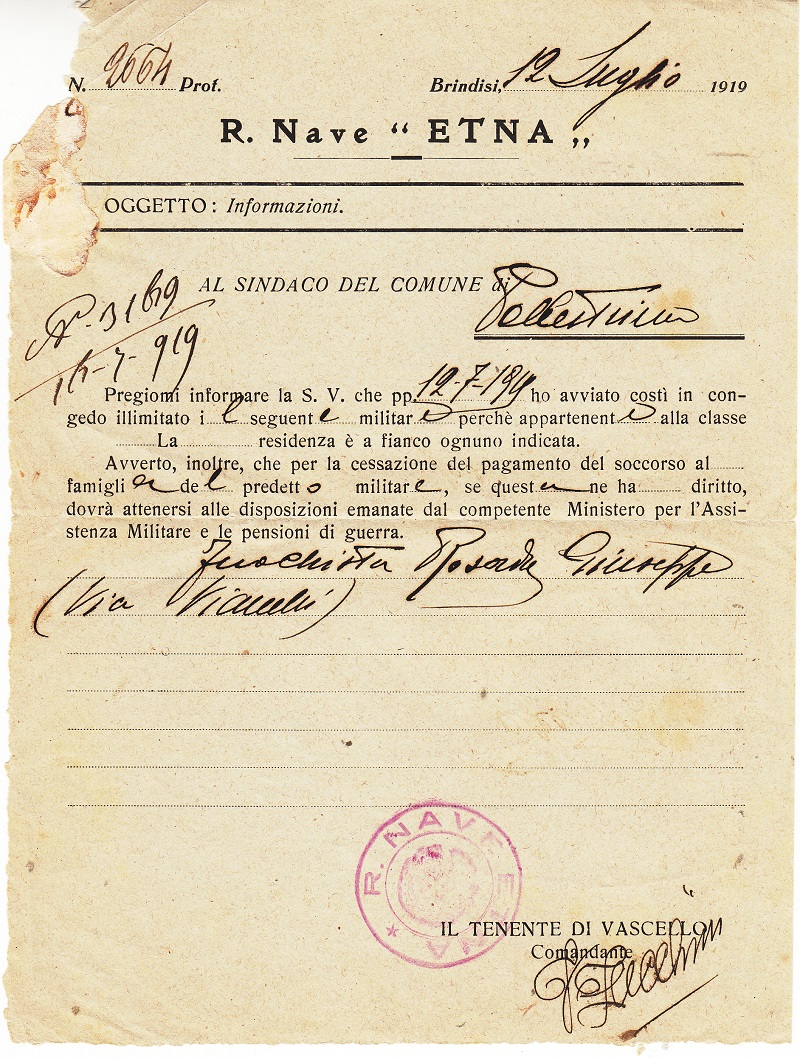 N. 2664 Prot. Brindisi, 12 Luglio 1919
R. Nave “ ETNA „
OGGETTO : Informazioni.
AL SINDACO DEL COMUNE di Pellestrina
N.
919
Pregiomi informare la S. V. che pp. 12-7-1919 ho avviato costì in con-
gedo illimitato i l seguent e militar e perchè appartenent e alla classe
La residenza è a fianco ognuno indicata.
Avverto, inoltre, che per la cessazione del pagamento del soccorso al
famigli a de l predett o militar e, se quest a ne ha diritto,
dovrà attenersi alle disposizioni emanate dal competente Ministero per l'Assi-
stenza Militare e le pensioni di guerra.
Fuochista Giuseppe
(Via
R. NAVE ETNA *
IL TENENTE DI VASCELLO
Comandante